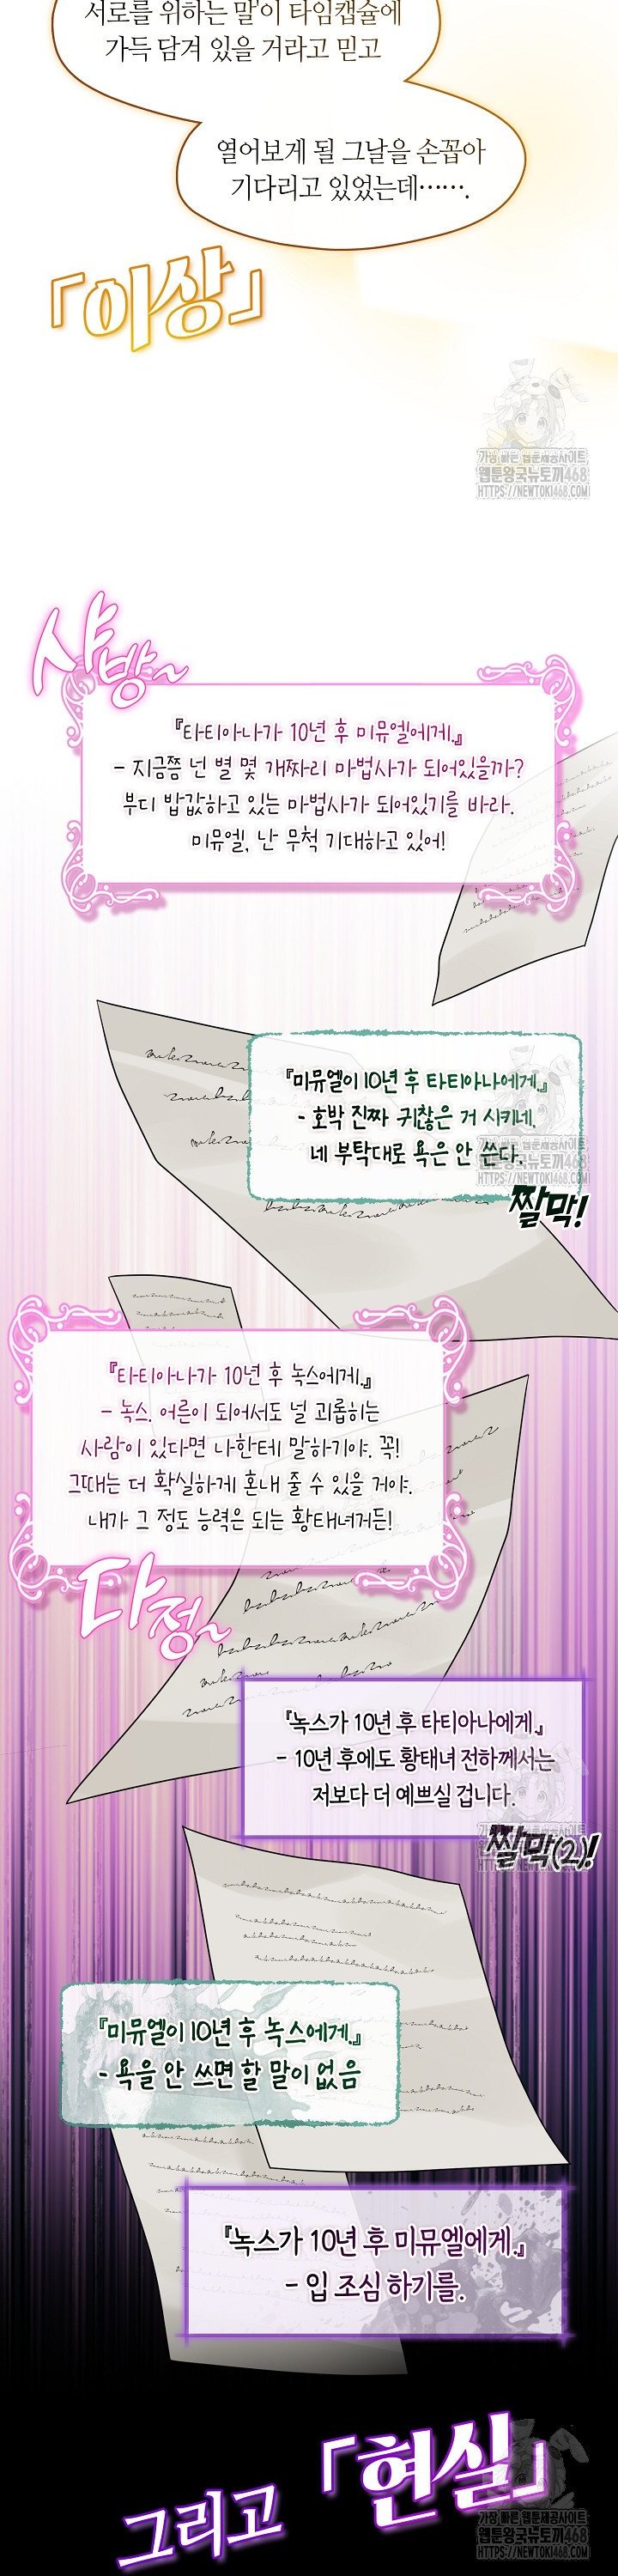 서로를 위하는 말'이 타임캡슐에
가득 담겨 있을 거라고 믿고
열어보게 될 그날을 손꼽아
기다리고 있었는데…….
「이상」
가장 빠른 웹툰제공사이트
웹툰왕국뉴토끼468
HTTPS://NEWTOKI468.COM
샤방~
『타티아나가 10년 후 미뮤엘에게.』
- 지금쯤 넌 별 몇 개짜리 마법사가 되어있을까?
부디 밥값하고 있는 마법사가 되어있기를 바라.
미뮤엘, 난 무척 기대하고 있어!
『미뮤엘이 10년 후 타티아나에게.』
- 호박 진짜 귀찮은 거 시키네.
네 부탁대로 욕은 안 쓴다.
가장 빠른 웹툰제공사이트
웹툰왕국뉴토끼468
HTTPS://NEWTOKI468.COM
짤막!
『타티아나가 10년 후 녹스에게.』
- 녹스. 어른이 되어서도 널 괴롭히는
사람이 있다면 나한테 말하기야. 꼭!
그때는 더 확실하게 혼내 줄 수 있을 거야.
내가 그 정도 능력은 되는 황태녀거든!
다정~
『녹스가 10년 후 타티아나에게.』
- 10년 후에도 황태녀 전하께서는
저보다 더 예쁘실 겁니다.
가장 빠른 웹툰제공사이트
웹툰왕국뉴토끼468
HTTPS://NEWTOKI468.COM
짤막(2)!
『미뮤엘이 10년 후 녹스에게.』
- 욕을 안 쓰면 할 말이 없음
『녹스가 10년 후 미뮤엘에게.』
- 입 조심 하기를.
그리고 「현실」
가장 빠른 웹툰제공사이트
웹툰왕국뉴토끼468
HTTPS://NEWTOKI468.COM